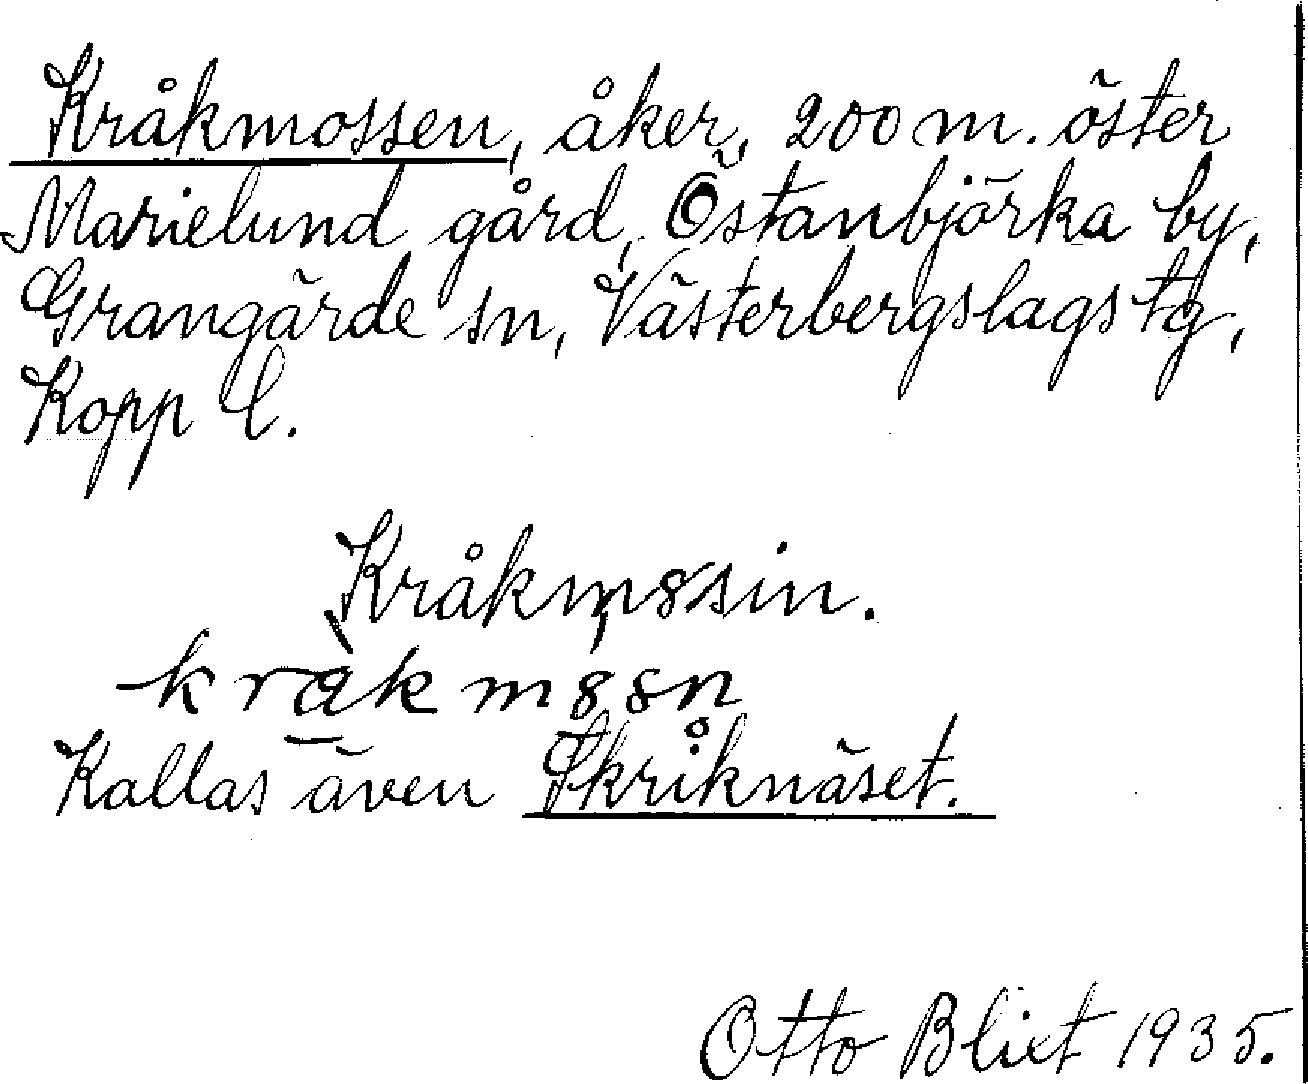 Kråkmossen, åker, 200 m. öster
Marielund gård, Östanbjörka by,
Grangärde sn, Västerbergslags tg,
Kopp l.
Kråkm8sin.
kråkm8sn
Kallas även Skriknäset.
Otto Blixt 1935.